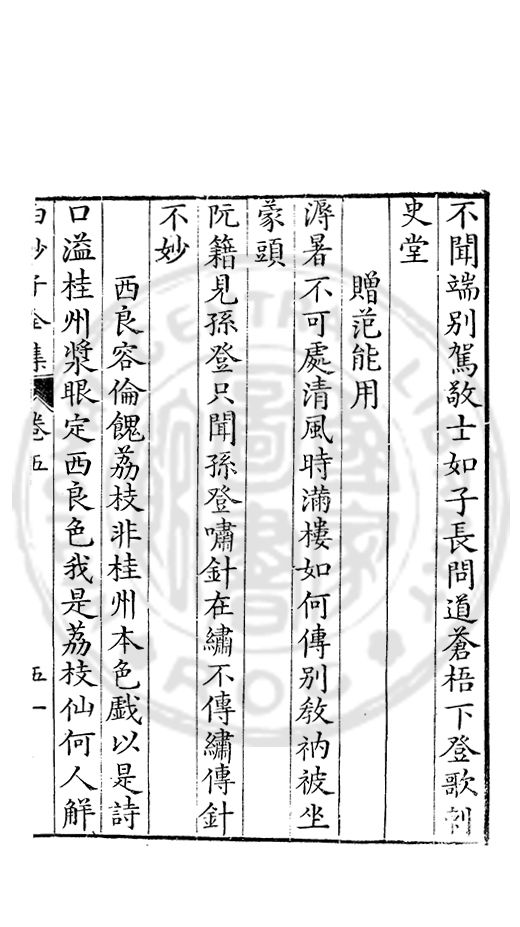 不聞端别駕敬士如子長問道蒼梧下登歌刺
史堂
贈范能用
溽暑不可處清風時滿樓如何傳别敎衲被坐
蒙頭
阮籍見孫登只聞孫登嘯針在繡不傳繡傳針
不妙
西良容倫餽荔枝非桂州本色戯以是詩
口溢桂州漿眼定西良色我是荔枝仙何人解
白沙子全集 卷五 五一